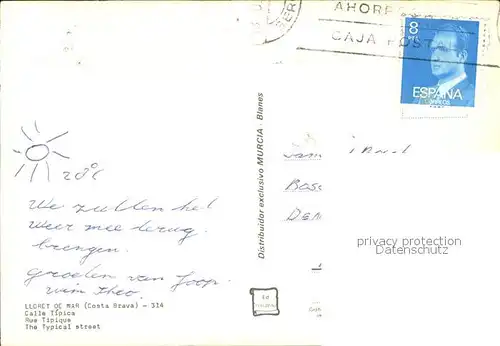 AHORR
CAJA POSTAL
8
PTA
ESPAÑA
CORREOS
28°C
We zullen het
weer mee terug
brengen.
groeten van Joop
van Theo.
LLORET DE MAR (Costa Brava) - 314
Calle Típica
Rue Tipique
The Typical street
Distribuidor exclusivo MURCIA - Blanes
Bosc
DEN
privacy protection
Datenschutz